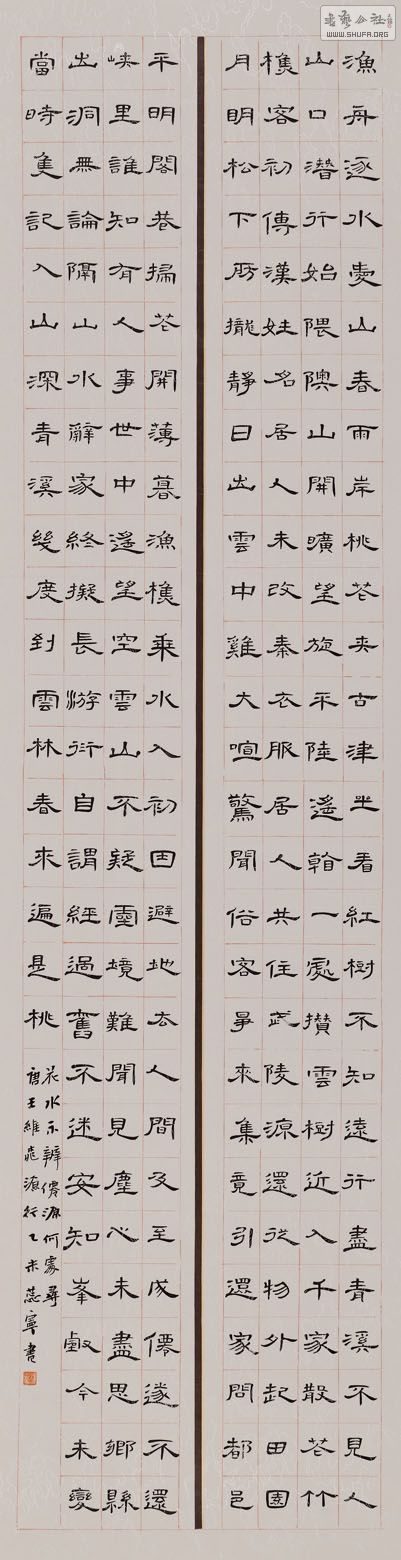 書藝公社
WWW.SHUFA.ORG
漁舟逐水愛山春兩岸桃花夾古津坐看紅樹不知遠行盡青溪不見人
山口潛行始隈隩山開曠望旋平陸遙看一處攢雲樹近入千家散花竹
樵客初傳漢姓名居人未改秦衣服居人共住武陵源還從物外起田園
月明松下房櫳靜日出雲中雞犬喧驚聞俗客爭來集競引還家問都邑
平明閭巷掃花開薄暮漁樵乘水入初因避地去人間及至成僊遂不還
峽里誰知有人事世中遙望空雲山不疑靈境難聞見塵心未盡思鄉縣
出洞無論隔山水辭家終擬長游衍自謂經過舊不迷安知峯壑今未變
當時隻記入山深青溪幾度到雲林春來遍是桃
花水不辨僊源何處尋
唐王維桃源行乙未蕊寧書